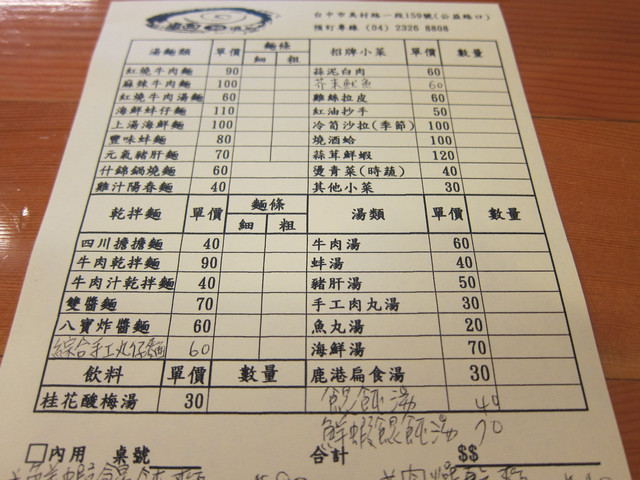 台中市美村路一段159號(公益路口)
預訂專線 (04) 2326 8808
湯麵類 單價 麵條 細 粗 招牌小菜 單價 數量
紅燒牛肉麵 90 蒜泥白肉 60
麻辣牛肉麵 100 芥末魷魚 60
紅燒牛肉湯麵 60 雞絲拉皮 60
海鮮蚌仔麵 110 紅油抄手 50
上湯海鮮麵 100 冷筍沙拉(季節) 100
豐味蚌麵 80 燒酒蛤 100
元氣豬肝麵 70 蒜茸鮮蝦 120
什錦鍋燒麵 60 燙青菜(時蔬) 40
雞汁陽春麵 40 其他小菜 30
乾拌麵 單價 麵條 細 粗 湯類 單價 數量
四川擔擔麵 40 牛肉湯 60
牛肉乾拌麵 90 蚌湯 40
牛肉汁乾拌麵 40 豬肝湯 50
雙醬麵 70 手工肉丸湯 30
八寶炸醬麵 60 魚丸湯 20
綜合手工丸仔麵 60 海鮮湯 70
飲料 單價 數量 鹿港扁食湯 30
桂花酸梅湯 30 餛飩湯 40
鮮蝦餛飩湯 70
□內用 桌號 合計 $$